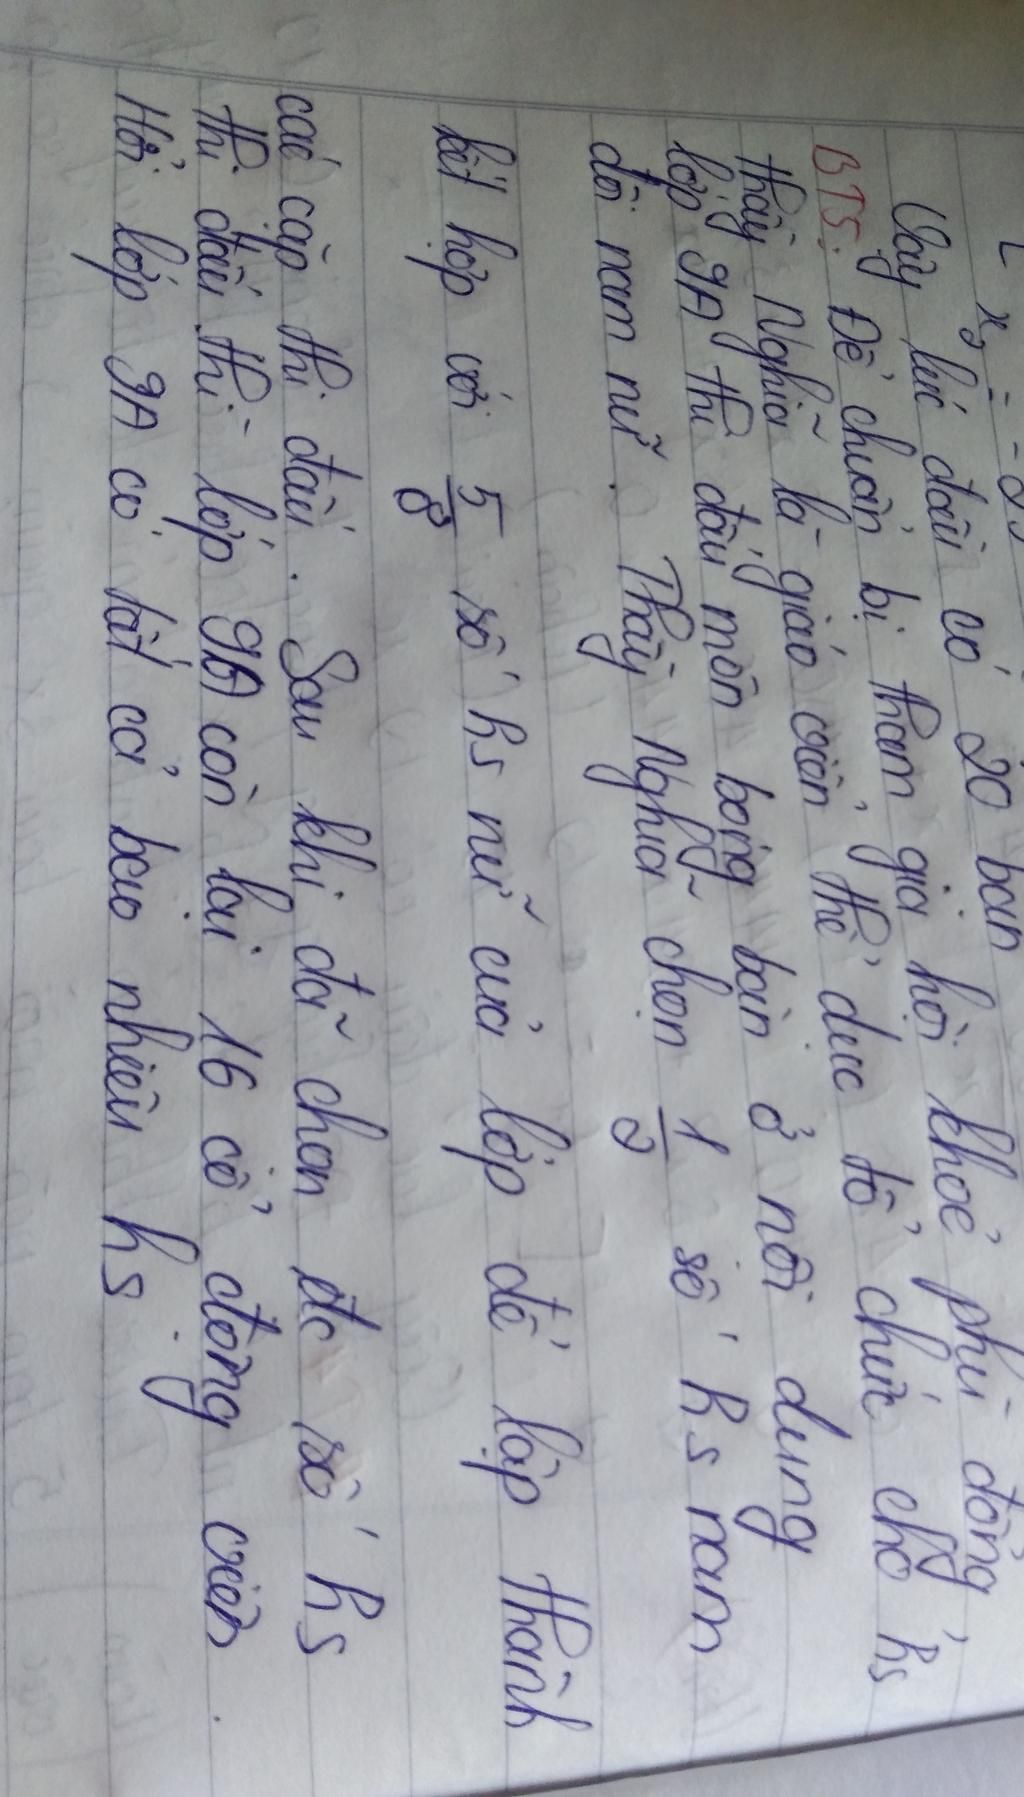 Vậy lúc đầu có 20 bạn
BT5: Để chuẩn bị tham gia hội khoẻ phù đổng
thầy Nghĩa là giáo viên thể dục tổ chức cho hs
lớp 9A thi đấu môn bóng bàn ở nội dung
đôi nam nữ. Thầy Nghĩa chọn 1/2 số hs nam
kết hợp với 5/8 số hs nữ của lớp để lập thành
các cặp thi đấu. Sau khi đã chọn đc số hs
thi đấu thì lớp 9A còn lại 16 cổ động viên.
Hỏi lớp 9A có tất cả bao nhiêu hs.